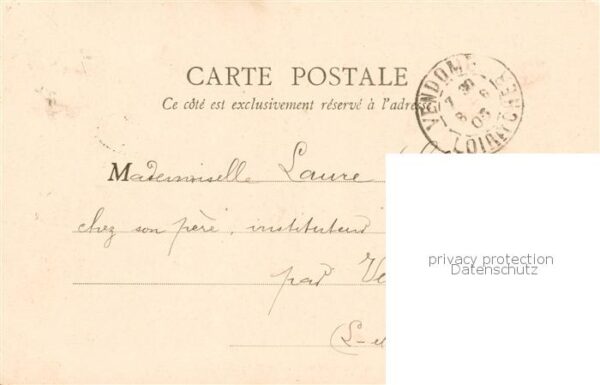 CARTE POSTALE
Ce côté est exclusivement réservé à l'adres
VENDOME
7 30
8 - 6
03
LOIR & CHER
Mademoiselle Laure
chez son père, instituteur
par Ve
(L-e
privacy protection
Datenschutz